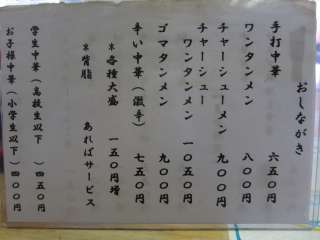 おしながき
手打中華 六五〇円
ワンタンメン 八〇〇円
チャーシューメン 九〇〇円
チャーシュー
ワンタンメン 一〇五〇円
ゴマタンメン 九〇〇円
辛い中華(激辛) 七五〇円
※各種大盛 一五〇円増
※背脂 あればサービス
学生中華(高校生以下) 四五〇円
お子様中華(小学生以下) 四〇〇円